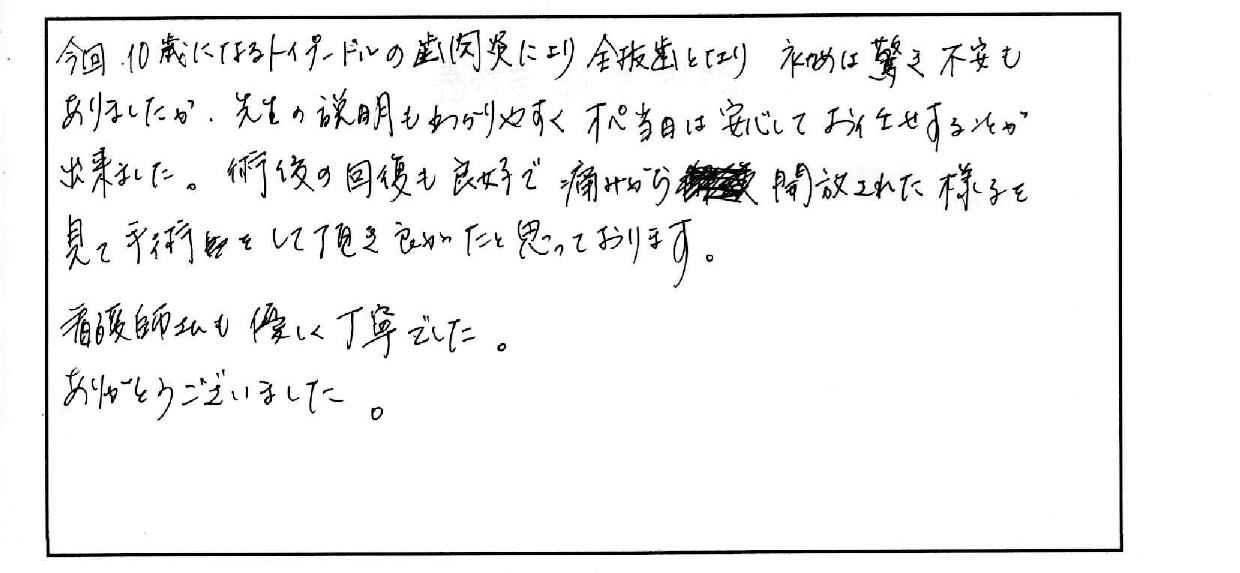 今回、10歳になるトイプードルの歯肉炎により全抜歯となり 初めは驚き 不安も
ありましたが、先生の説明もわかりやすく オペ当日は安心して お任せすることが
出来ました。術後の回復も良好で 痛みから 開放された様子を
見て 手術をして頂き良かったと思っております。
看護師さんも 優しく丁寧でした。
ありがとうございました。